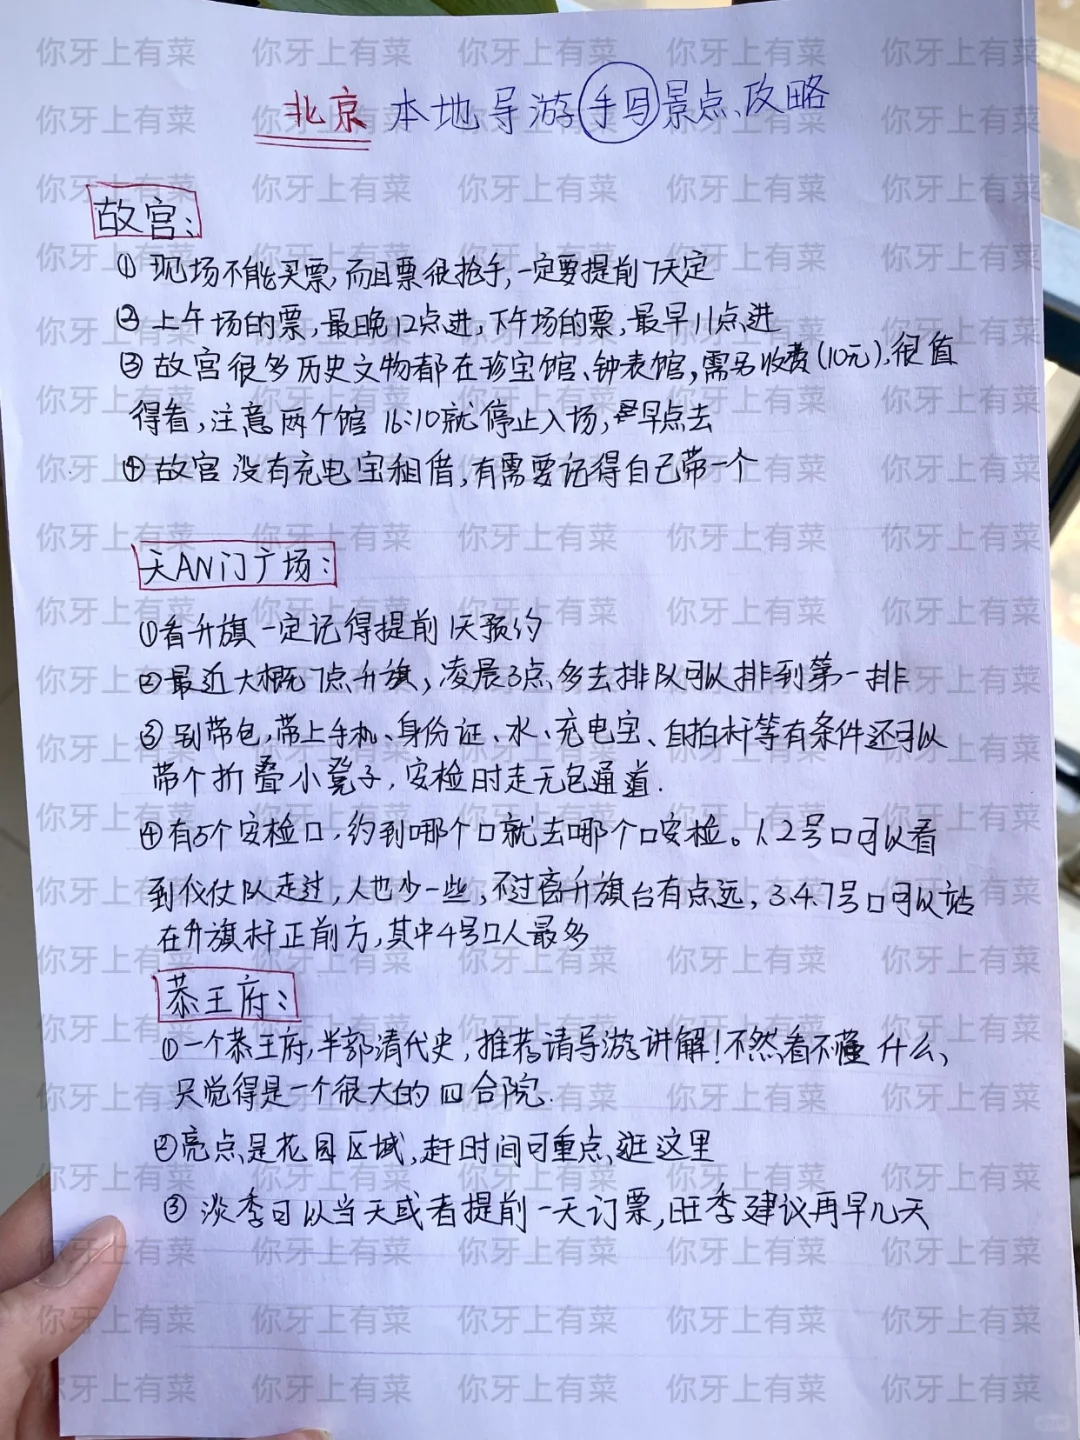 北京本地导游手写景点攻略
故宫:
① 现场不能买票,而且票很抢手,一定要提前7天定
② 上午场的票,最晚12点进,下午场的票,最早11点进
③ 故宫很多历史文物都在珍宝馆、钟表馆,需另收费(10元),很值
得看,注意两个馆 16:10就停止入场,早点去
④ 故宫没有充电宝租借,有需要记得自己带一个
天AN门广场:
①看升旗一定记得提前1天预约
②最近大概7点升旗,凌晨3点多去排队可以排到第一排
③ 别带包,带上手机、身份证、水、充电宝、自拍杆等有条件还可以
带个折叠小凳子,安检时走无包通道.
④有5个安检口,约到哪个口就去哪个口安检。1.2号口可以看
到仪仗队走过,人也少一些,不过离升旗台有点远,3.4.7号口可以站
在升旗杆正前方,其中4号口人最多
恭王府:
①一个恭王府,半部清代史,推荐请导游讲解!不然看不懂什么,
只觉得是一个很大的四合院.
②亮点是花园区域,赶时间可重点逛这里
③ 淡季可以当天或者提前一天订票,旺季建议再早几天
你牙上有菜